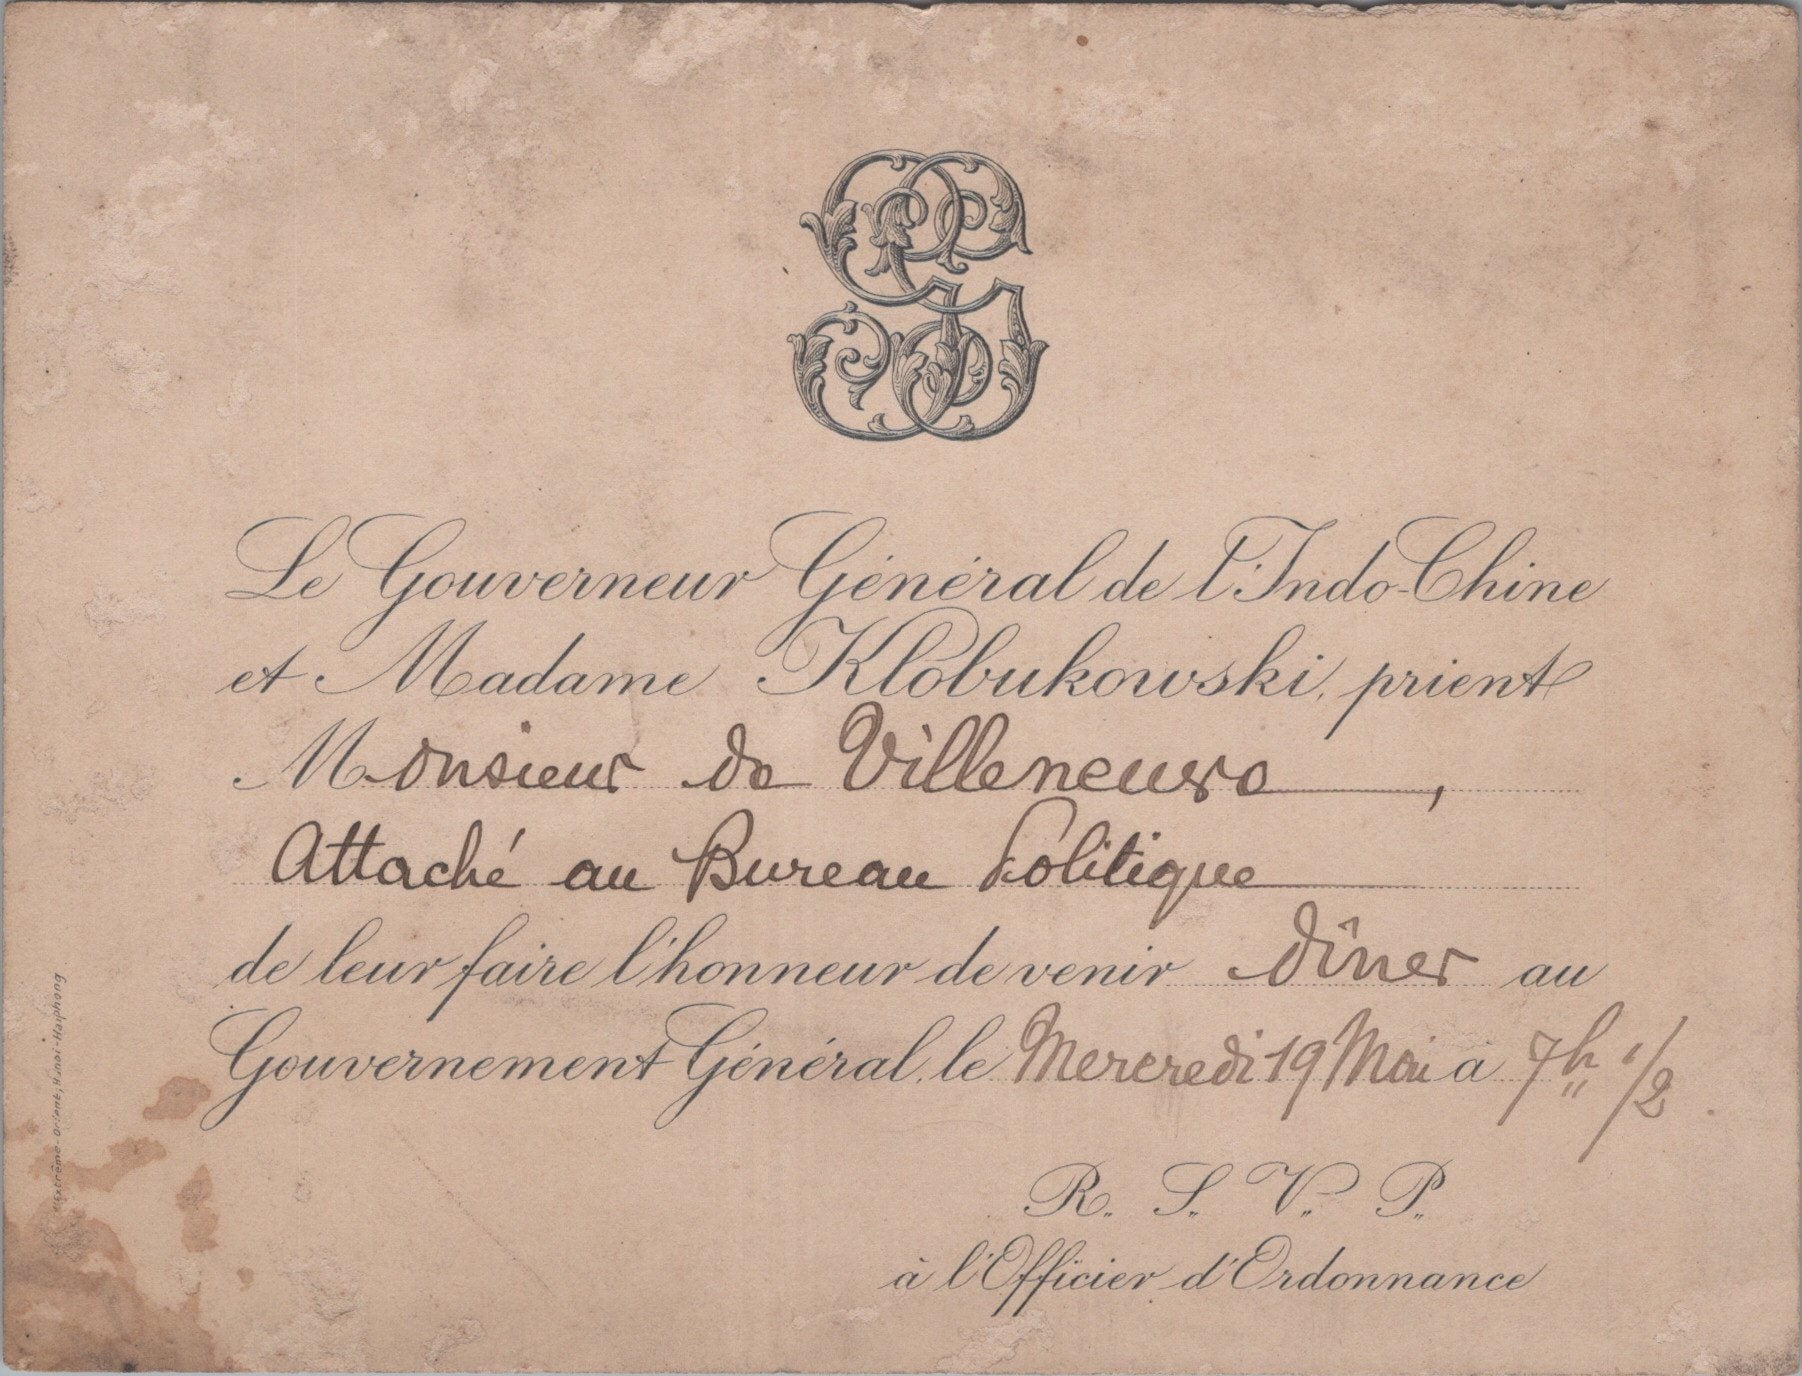 GG
Le Gouverneur Général de l'Indo-Chine
et Madame Klobukowski, prient
Monsieur de Villeneuve,
Attaché au Bureau Politique
de leur faire l'honneur de venir dîner au
Gouvernement Général, le Mercredi 19 Mai à 7h 1/2.
R. S. V. P.
à l'Officier d'Ordonnance
Extrême-Orient, Hanoi-Haiphong